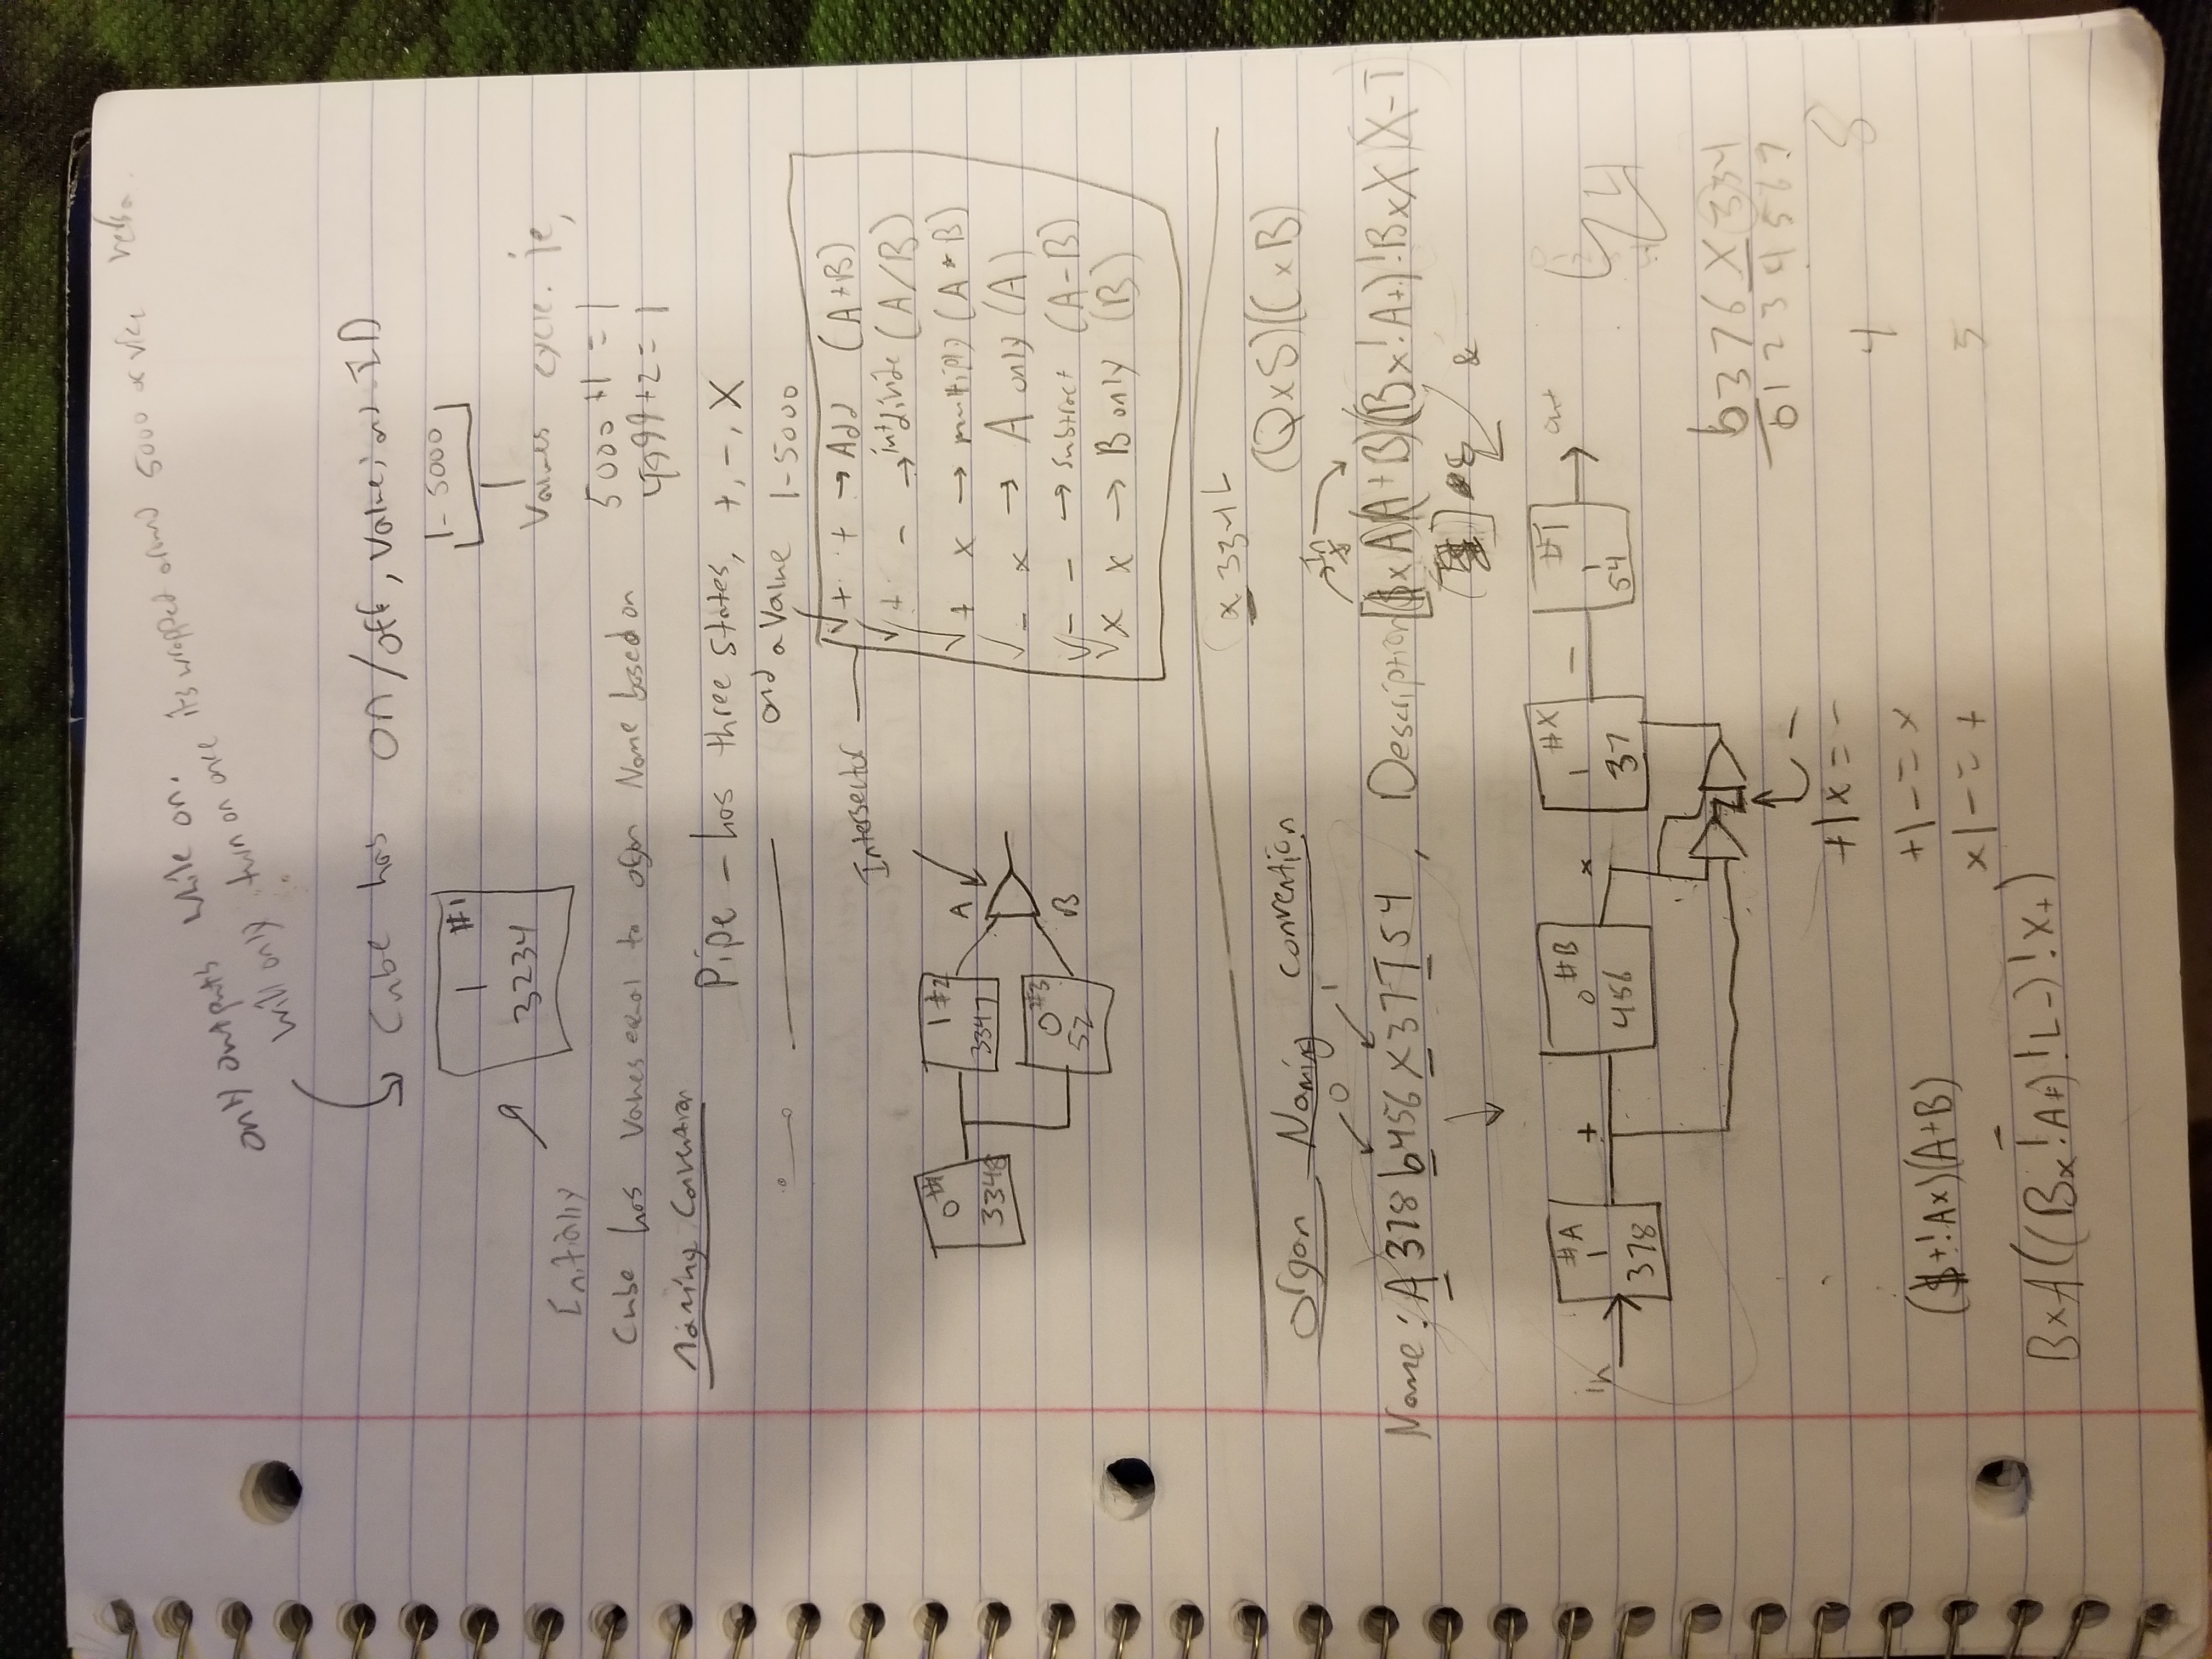 only outputs while on.
will only turn on once its wrapped around 5000 or vice versa.
Cube has on/off, Value, and ID
1 - 5000
1 #1
3234
Values cycle. ie,
Initially
5000 +1 = 1
Cube has Values equal to organ Name based on
4999+2 = 1
Naming Convention
Pipe - has three states, +, -, X
and a Value 1-5000
Intersector
+ + → Add (A+B)
+ - → int divide (A/B)
+ x → multiply (A * B)
- x → A only (A)
- - → Subtract (A-B)
x x → B only (B)
0 #1
3348
1 #2
3347
A
0 #3
52
B
(QxS)(CxB)
Organ Naming convention
0 1
In
Name: A378b456X37T54, Description[($xA)(A+B)(Bx!A+)!BxX(X-T)
&
in
#A
1
378
+
#B
0
456
x
#X
1
37
-
#T
1
54
out
b376X334
01234567
-
+|x = -
+|- = x
x|- = +
4
5
8
($+!Ax)(A+B)
BxA((Bx!A+)!L-)!X+)